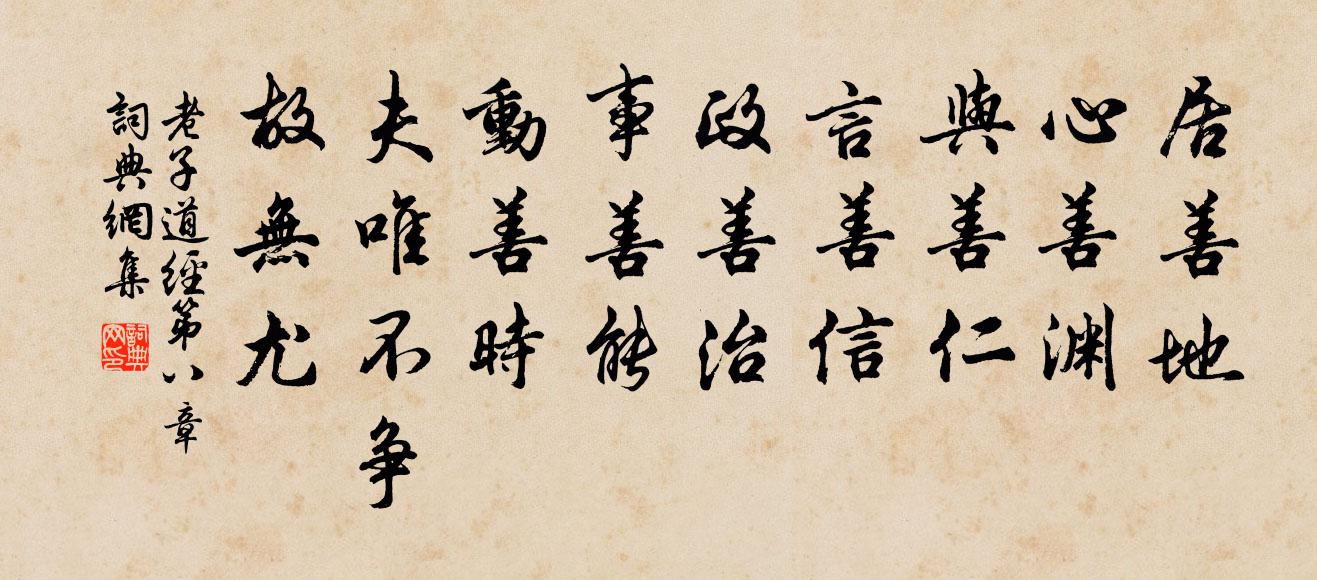 居善地
心善渊
與善仁
言善信
政善治
事善能
動善時
夫唯不争
故無尤
老子道經第八章
詞典網集
詞典网印